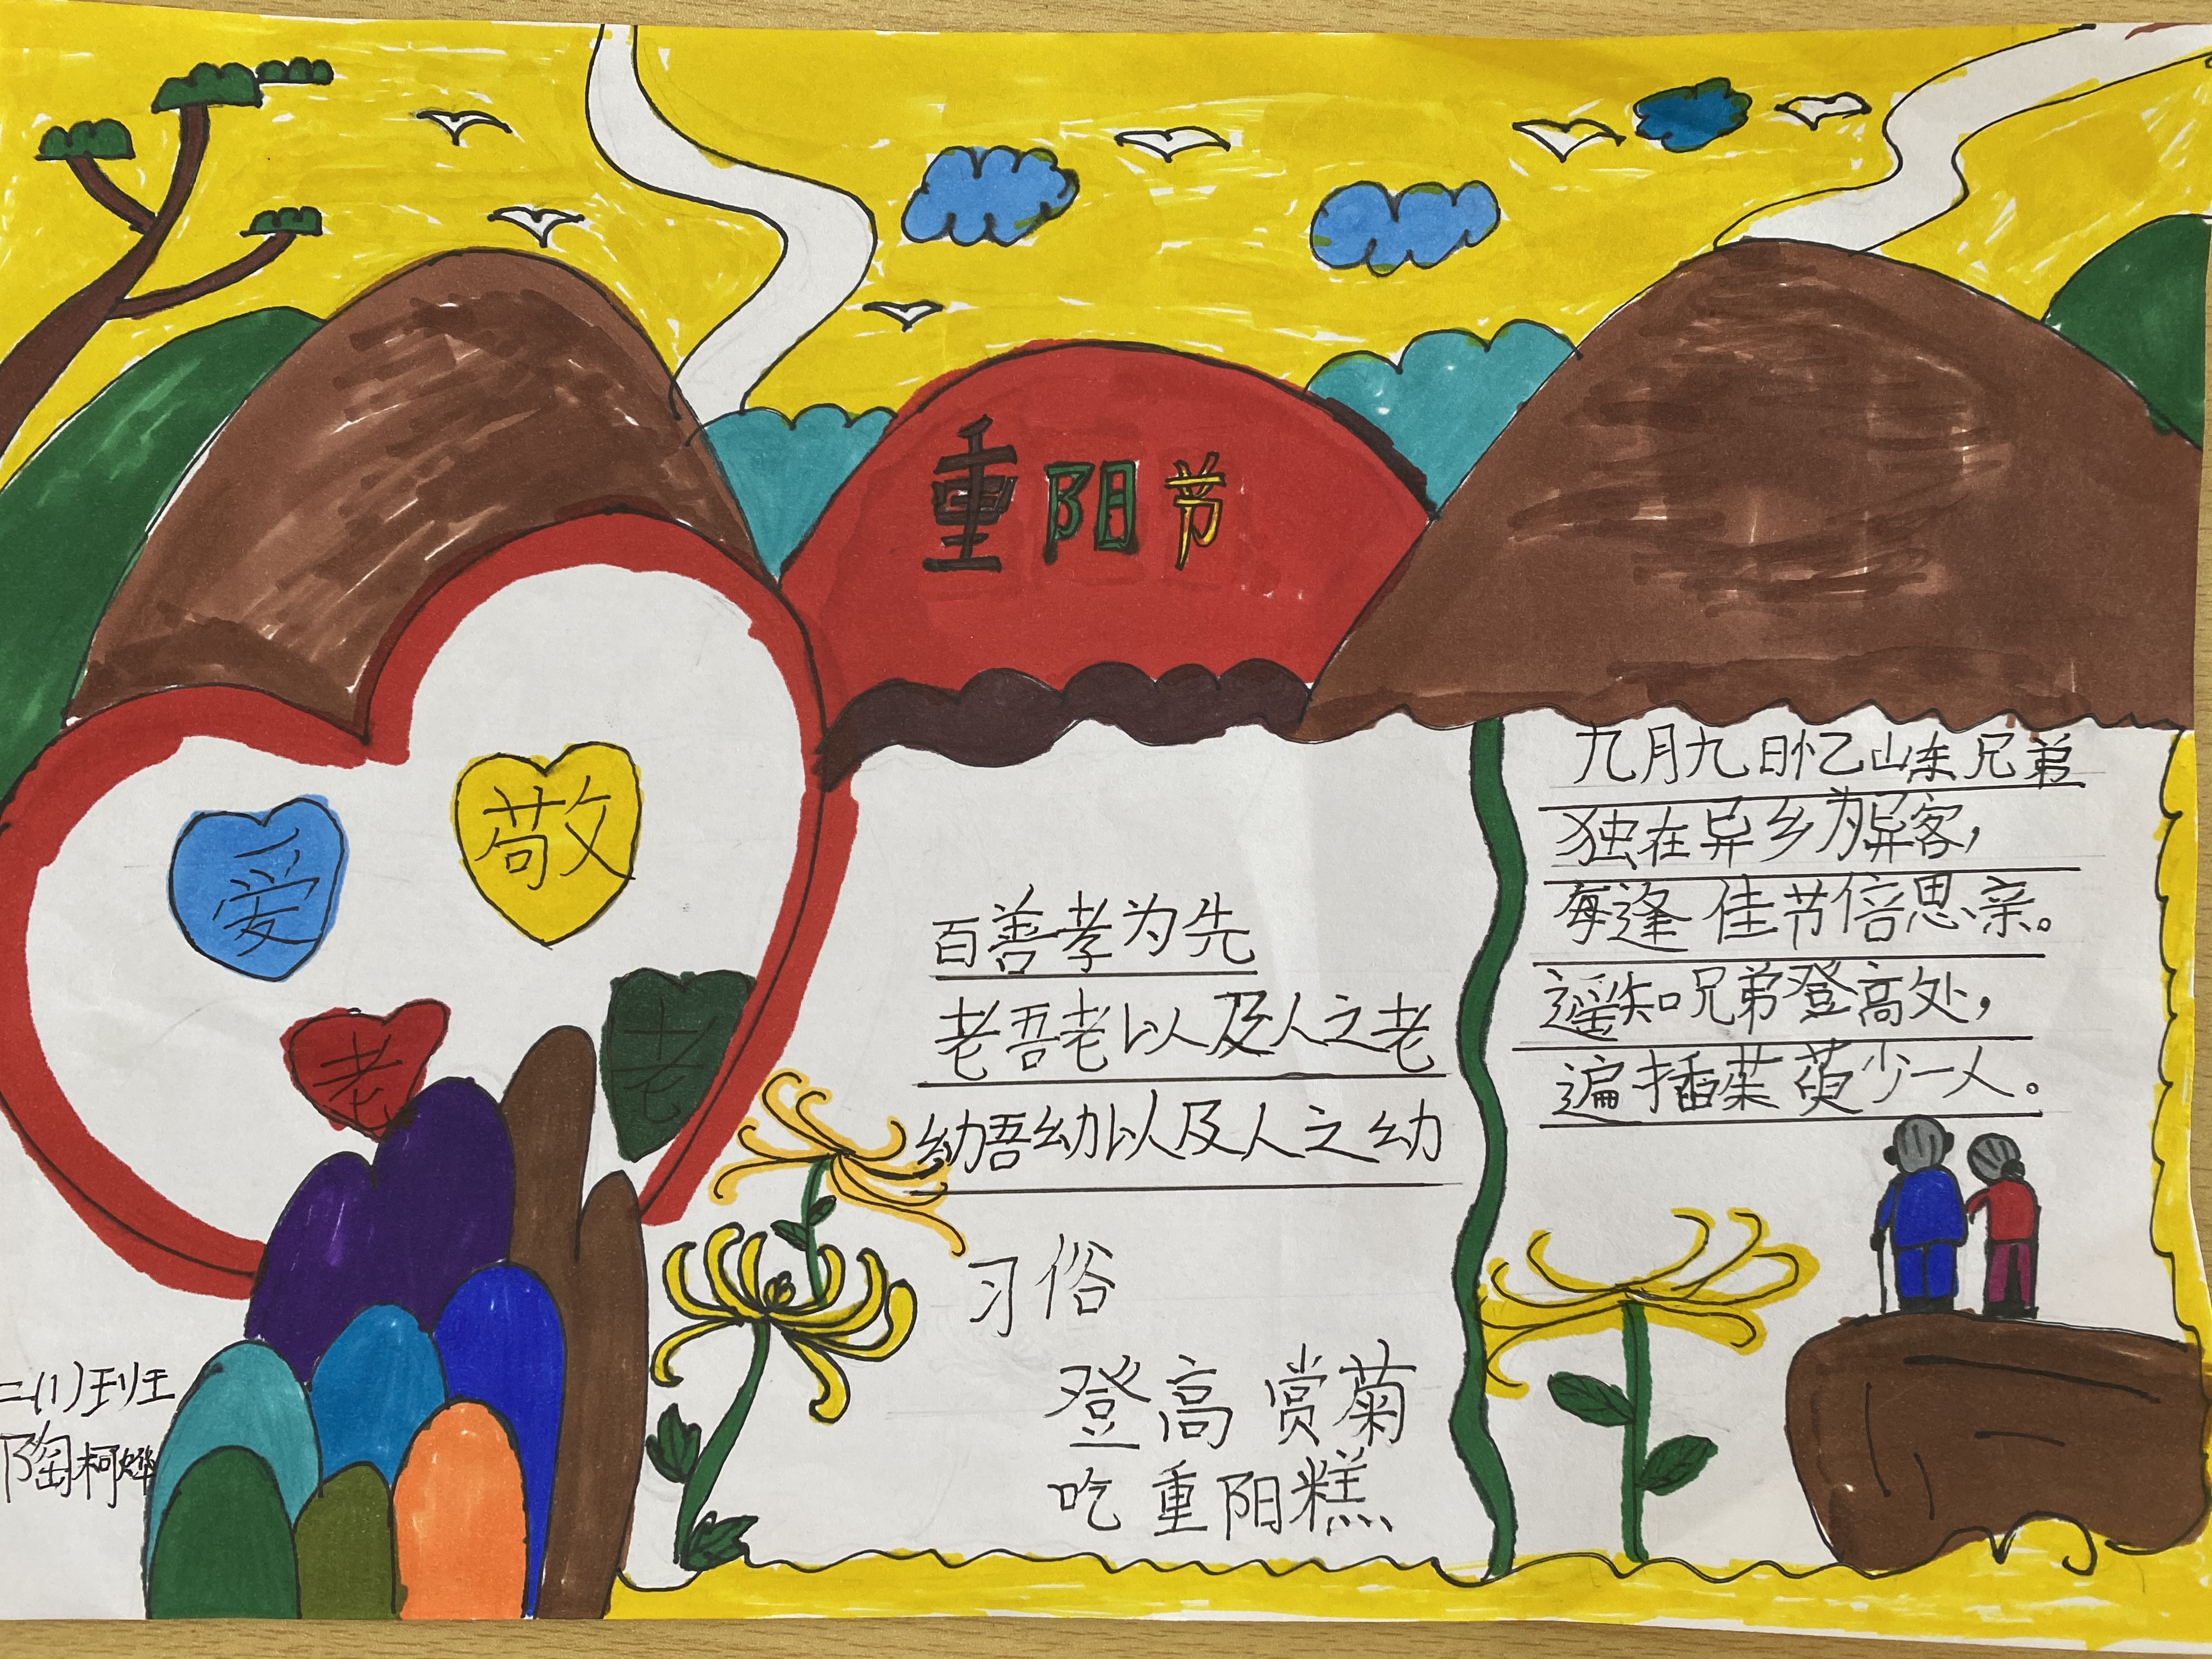 重阳节
爱 敬
老 老
百善孝为先
老吾老以及人之老
幼吾幼以及人之幼
习俗
登高 赏菊
吃重阳糕
九月九日忆山东兄弟
独在异乡为异客，
每逢佳节倍思亲。
遥知兄弟登高处，
遍插茱萸少一人。
二(1)班
陶柯烨